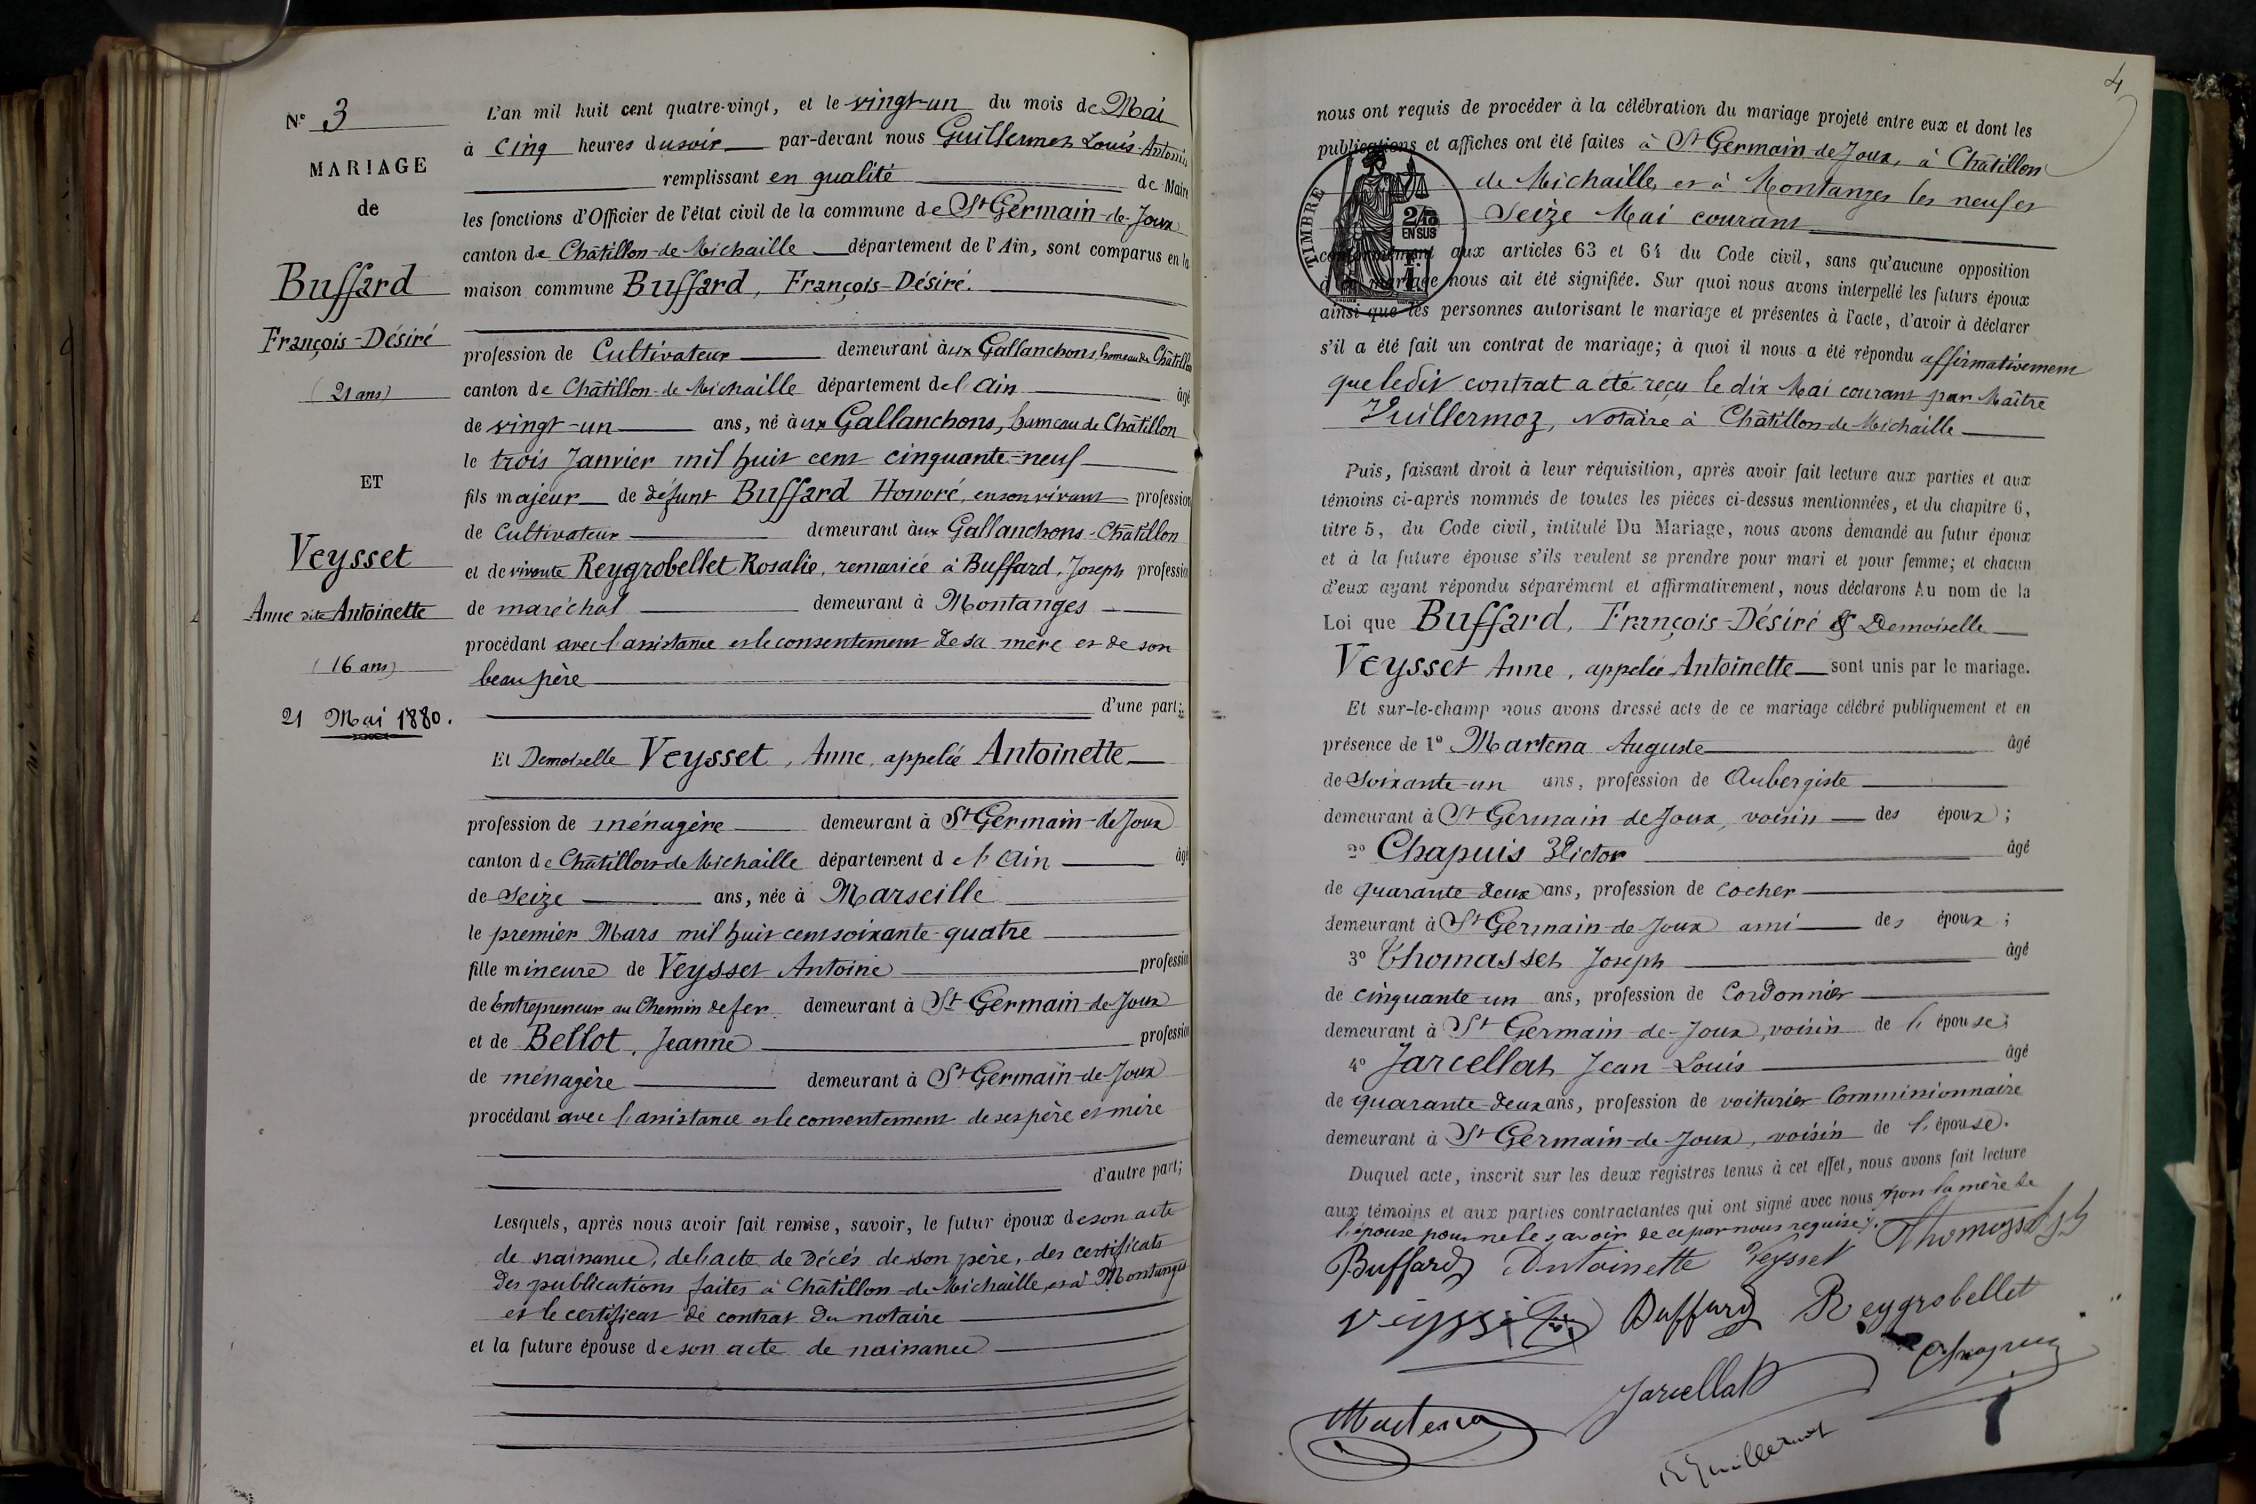 N° 3
MARIAGE
de
Buffard
François-Désiré
(21 ans)
ET
Veysset
Anne dite Antoinette
(16 ans)
21 Mai 1880.
L'an mil huit cent quatre-vingt, et le vingt-un du mois de Mai
à cinq heures du soir par-devant nous Guillermet Louis-Antonin
remplissant en qualité de Maire
les fonctions d'Officier de l'état civil de la commune de St Germain-de-Joux
canton de Châtillon-de-Michaille département de l'Ain, sont comparus en la
maison commune Buffard, François-Désiré.
profession de Cultivateur demeurant aux Gallanchons, hameau de Châtillon
canton de Châtillon-de-Michaille département de l'Ain âgé
de vingt-un ans, né aux Gallanchons, hameau de Châtillon
le trois Janvier mil huit cent cinquante-neuf
fils majeur de défunt Buffard Honoré, en son vivant profession
de Cultivateur demeurant aux Gallanchons-Châtillon
et de vivante Reygrobellet Rosalie, remariée à Buffard, Joseph profession
de maréchal demeurant à Montanges
procédant avec l'assistance et le consentement de sa mère et de son
beau père
d'une part;
Et Demoiselle Veysset, Anne, appelée Antoinette
profession de ménagère demeurant à St Germain-de-Joux
canton de Châtillon-de-Michaille département de l'Ain âgé
de Seize ans, née à Marseille
le premier Mars mil huit cent soixante-quatre
fille mineure de Veysset Antoine profession
de Entrepreneur au Chemin de fer demeurant à St Germain-de-Joux
et de Bellot, Jeanne profession
de ménagère demeurant à St Germain-de-Joux
procédant avec l'assistance et le consentement de ses père et mère
d'autre part;
Lesquels, après nous avoir fait remise, savoir, le futur époux de son acte
de naissance, de l'acte de Décès de son père, des certificats
des publications faites à Châtillon-de-Michaille et à Montanges
et le certificat de contrat du notaire
et la future épouse de son acte de naissance
4
nous ont requis de procéder à la célébration du mariage projeté entre eux et dont les
publications et affiches ont été faites à St Germain-de-Joux, à Châtillon
de Michaille, et à Montanges les neuf et
Seize Mai courant
TIMBRE
2/10
EN SUS
conformément aux articles 63 et 64 du Code civil, sans qu'aucune opposition
à ce mariage nous ait été signifiée. Sur quoi nous avons interpellé les futurs époux
ainsi que les personnes autorisant le mariage et présentes à l'acte, d'avoir à déclarer
s'il a été fait un contrat de mariage; à quoi il nous a été répondu affirmativement
que ledit contrat a été reçu le dix Mai courant par Maître
Vuillermoz, Notaire à Châtillon-de-Michaille
Puis, faisant droit à leur réquisition, après avoir fait lecture aux parties et aux
témoins ci-après nommés de toutes les pièces ci-dessus mentionnées, et du chapitre 6,
titre 5, du Code civil, intitulé Du Mariage, nous avons demandé au futur époux
et à la future épouse s'ils veulent se prendre pour mari et pour femme; et chacun
d'eux ayant répondu séparément et affirmativement, nous déclarons Au nom de la
Loi que Buffard, François-Désiré & Demoiselle
Veysset Anne, appelée Antoinette sont unis par le mariage.
Et sur-le-champ nous avons dressé acte de ce mariage célébré publiquement et en
présence de 1° Martena Auguste âgé
de Soixante-un ans, profession de Aubergiste
demeurant à St Germain-de-Joux, voisin des époux;
2° Chapuis Victor âgé
de quarante-deux ans, profession de Cocher
demeurant à St Germain-de-Joux ami des époux;
3° Thomasset Joseph âgé
de cinquante-un ans, profession de Cordonnier
demeurant à St Germain-de-Joux, voisin de l'épouse;
4° Jarcellat Jean Louis âgé
de quarante-deux ans, profession de voiturier-Commissionnaire
demeurant à St Germain-de-Joux, voisin de l'épouse.
Duquel acte, inscrit sur les deux registres tenus à cet effet, nous avons fait lecture
aux témoins et aux parties contractantes qui ont signé avec nous non la mère de
l'épouse pour ne le savoir de ce par nous requise.
Thomasset
Buffard Antoinette Veysset
Veysset Buffard Reygrobellet
Chapuis
Jarcellat
Martena
Guillermet